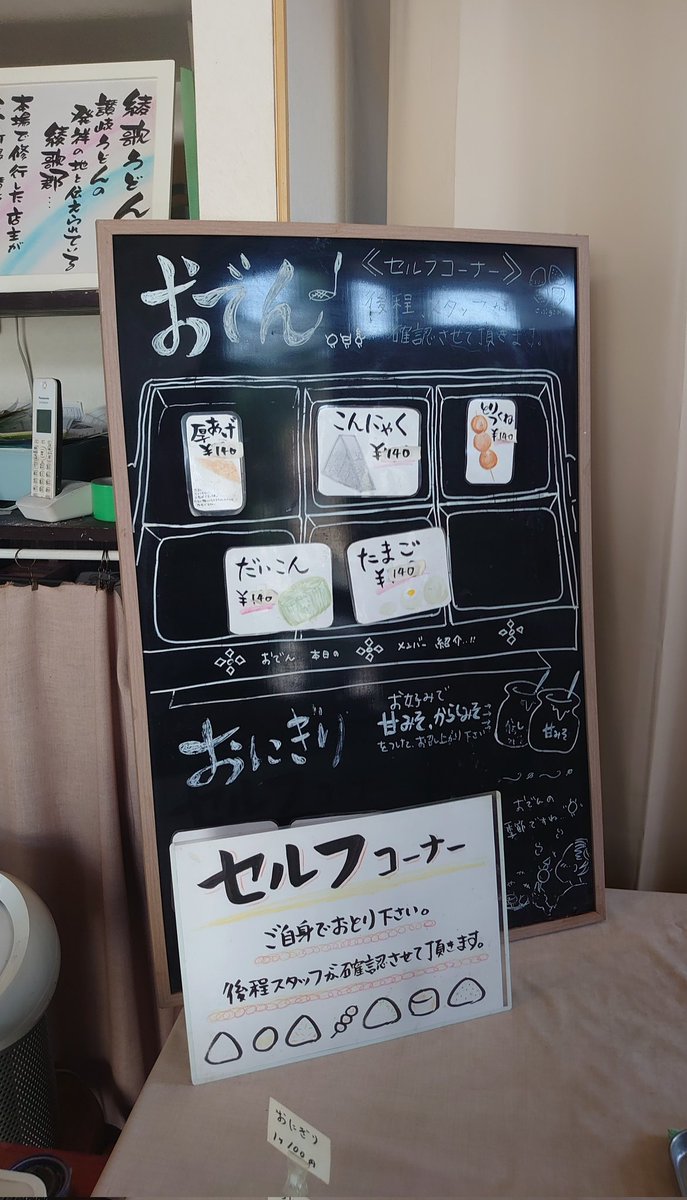 綾歌うどん
讃岐うどんの
発祥の地と伝えられている
綾歌郡…
本場で修行した店主が
おでん
《セルフコーナー》
後程、スタッフが
確認させて頂きます。
厚あげ
¥140
こんにゃく
¥140
とりつくね
¥140
だいこん
¥140
たまご
¥140
おでん 本日の メンバー紹介..!!
おにぎり
お好みで
甘みそ、からしみそ
をつけて、お召し上がり下さい
甘みそ
おでんの
季節ですね…
セルフコーナー
ご自身でおとり下さい。
後程スタッフが確認させて頂きます。
おにぎり
1ヶ100円